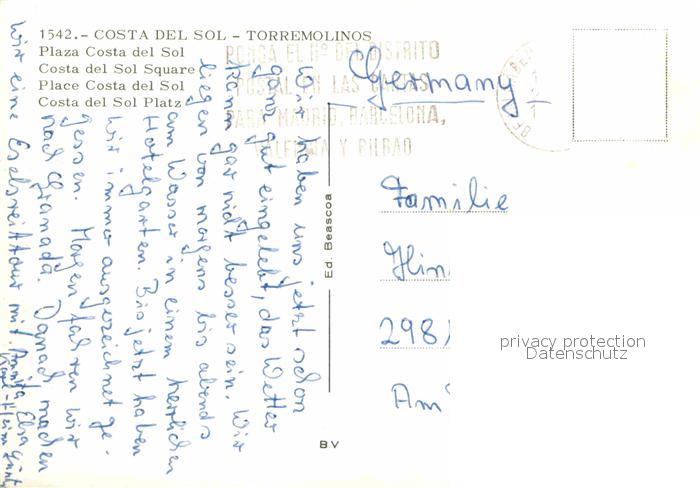 1542.- COSTA DEL SOL - TORREMOLINOS
Plaza Costa del Sol
Costa del Sol Square
Place Costa del Sol
Costa del Sol Platz
PONGA EL Nº DEL DISTRITO
POSTAL EN LAS CARTAS
PARA MADRID, BARCELONA,
VALENCIA Y BILBAO
Germany
Wir haben uns jetzt schon
ganz gut eingelebt, das Wetter
kann gar nicht besser sein. Wir
liegen von morgens bis abends
am Wasser in einem herrlichen
Hotelgarten. Bis jetzt haben
wir immer ausgezeichnet ge-
gessen. Morgen fahren wir
nach Granada. Danach machen
wir eine Eselsreittour mit. Annita, Elsa
Ed. Beascoa
Familie
Hin
298
Am
privacy protection
Datenschutz
BV